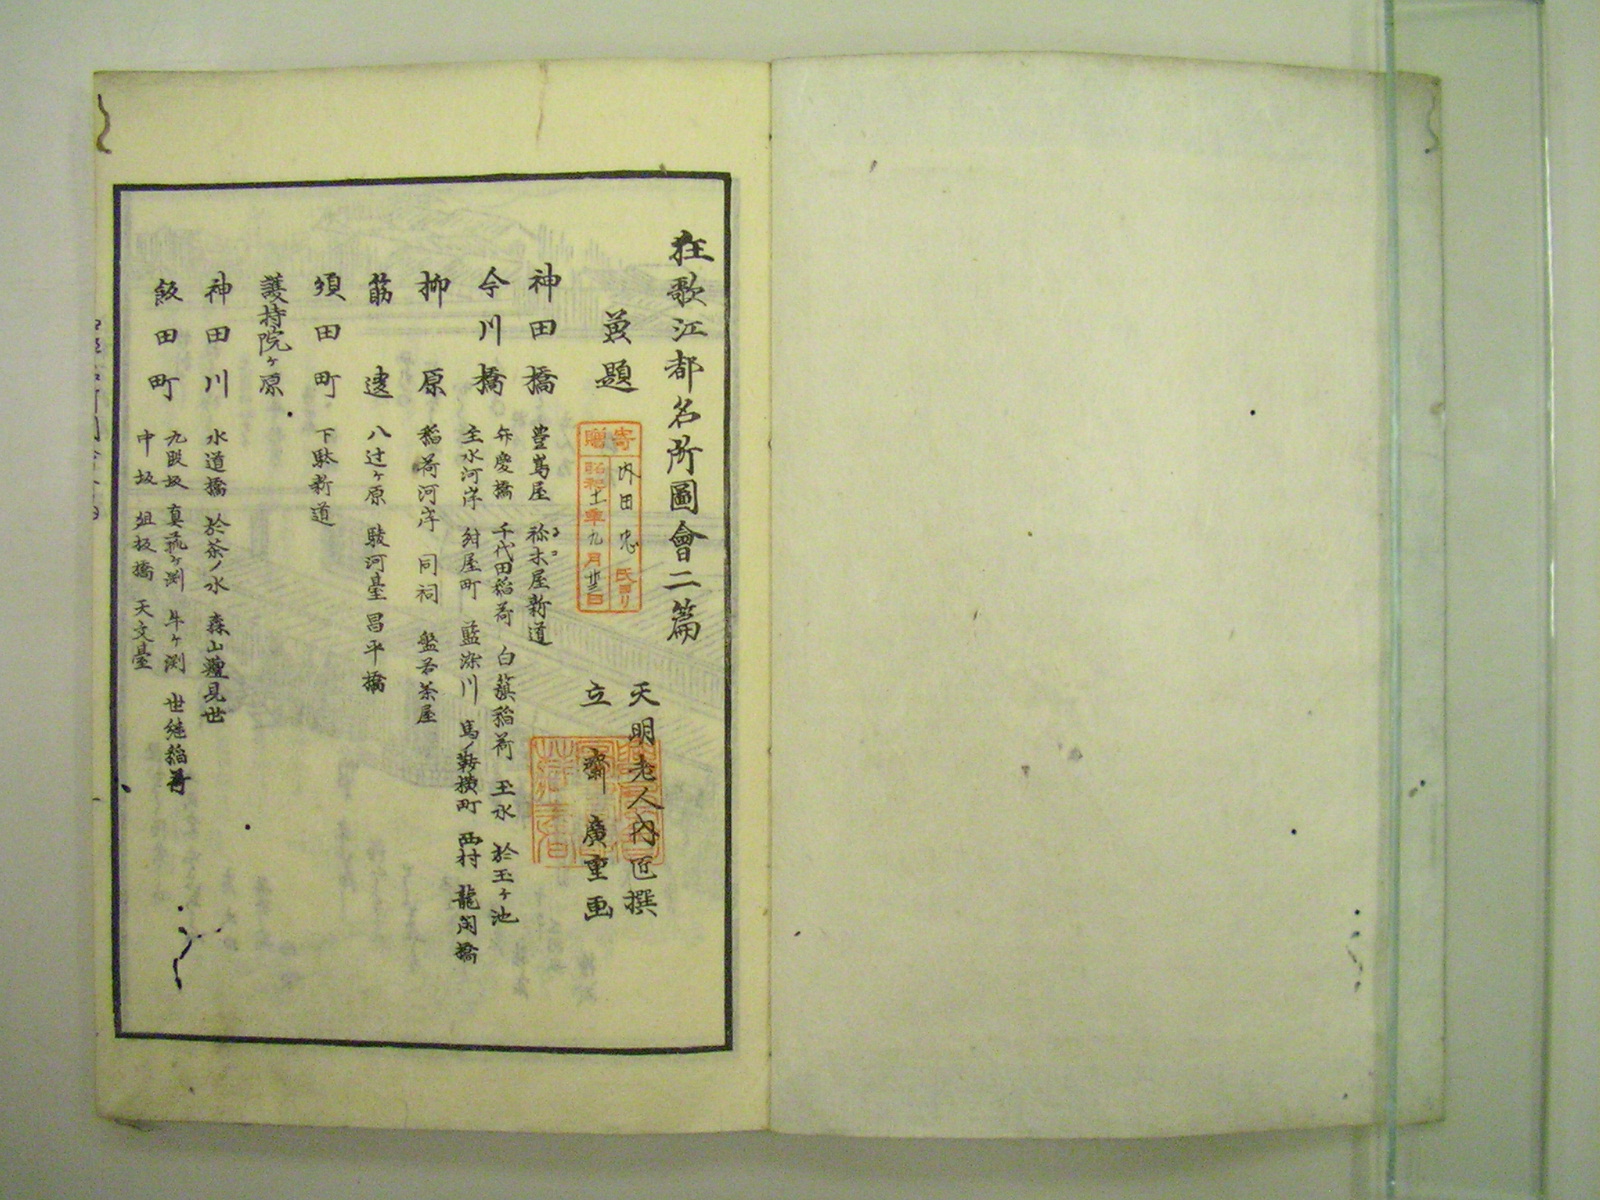 狂歌江都名所圖會二篇
天明老人内匠撰
立齋廣重画
兼題
寄贈
内田忠氏ヨリ
昭和十一年九月廿三日
神田橋 豊嶌屋 祢木屋新道
今川橋 弁慶橋 千代田稲荷 白籏稲荷 玉水 於玉ヶ池
主水河岸 紺屋町 藍染川 馬ノ鞍横町 西村 龍閑橋
柳原 稲荷河岸 同祠 盤若茶屋
筋違 八辻ヶ原 駿河臺 昌平橋
須田町 下駄新道
護持院ヶ原
神田川 水道橋 於茶ノ水 森山見世
飯田町 九段坂 真菰ヶ渕 牛ヶ渕 世継稲荷
中坂 俎板橋 天文臺